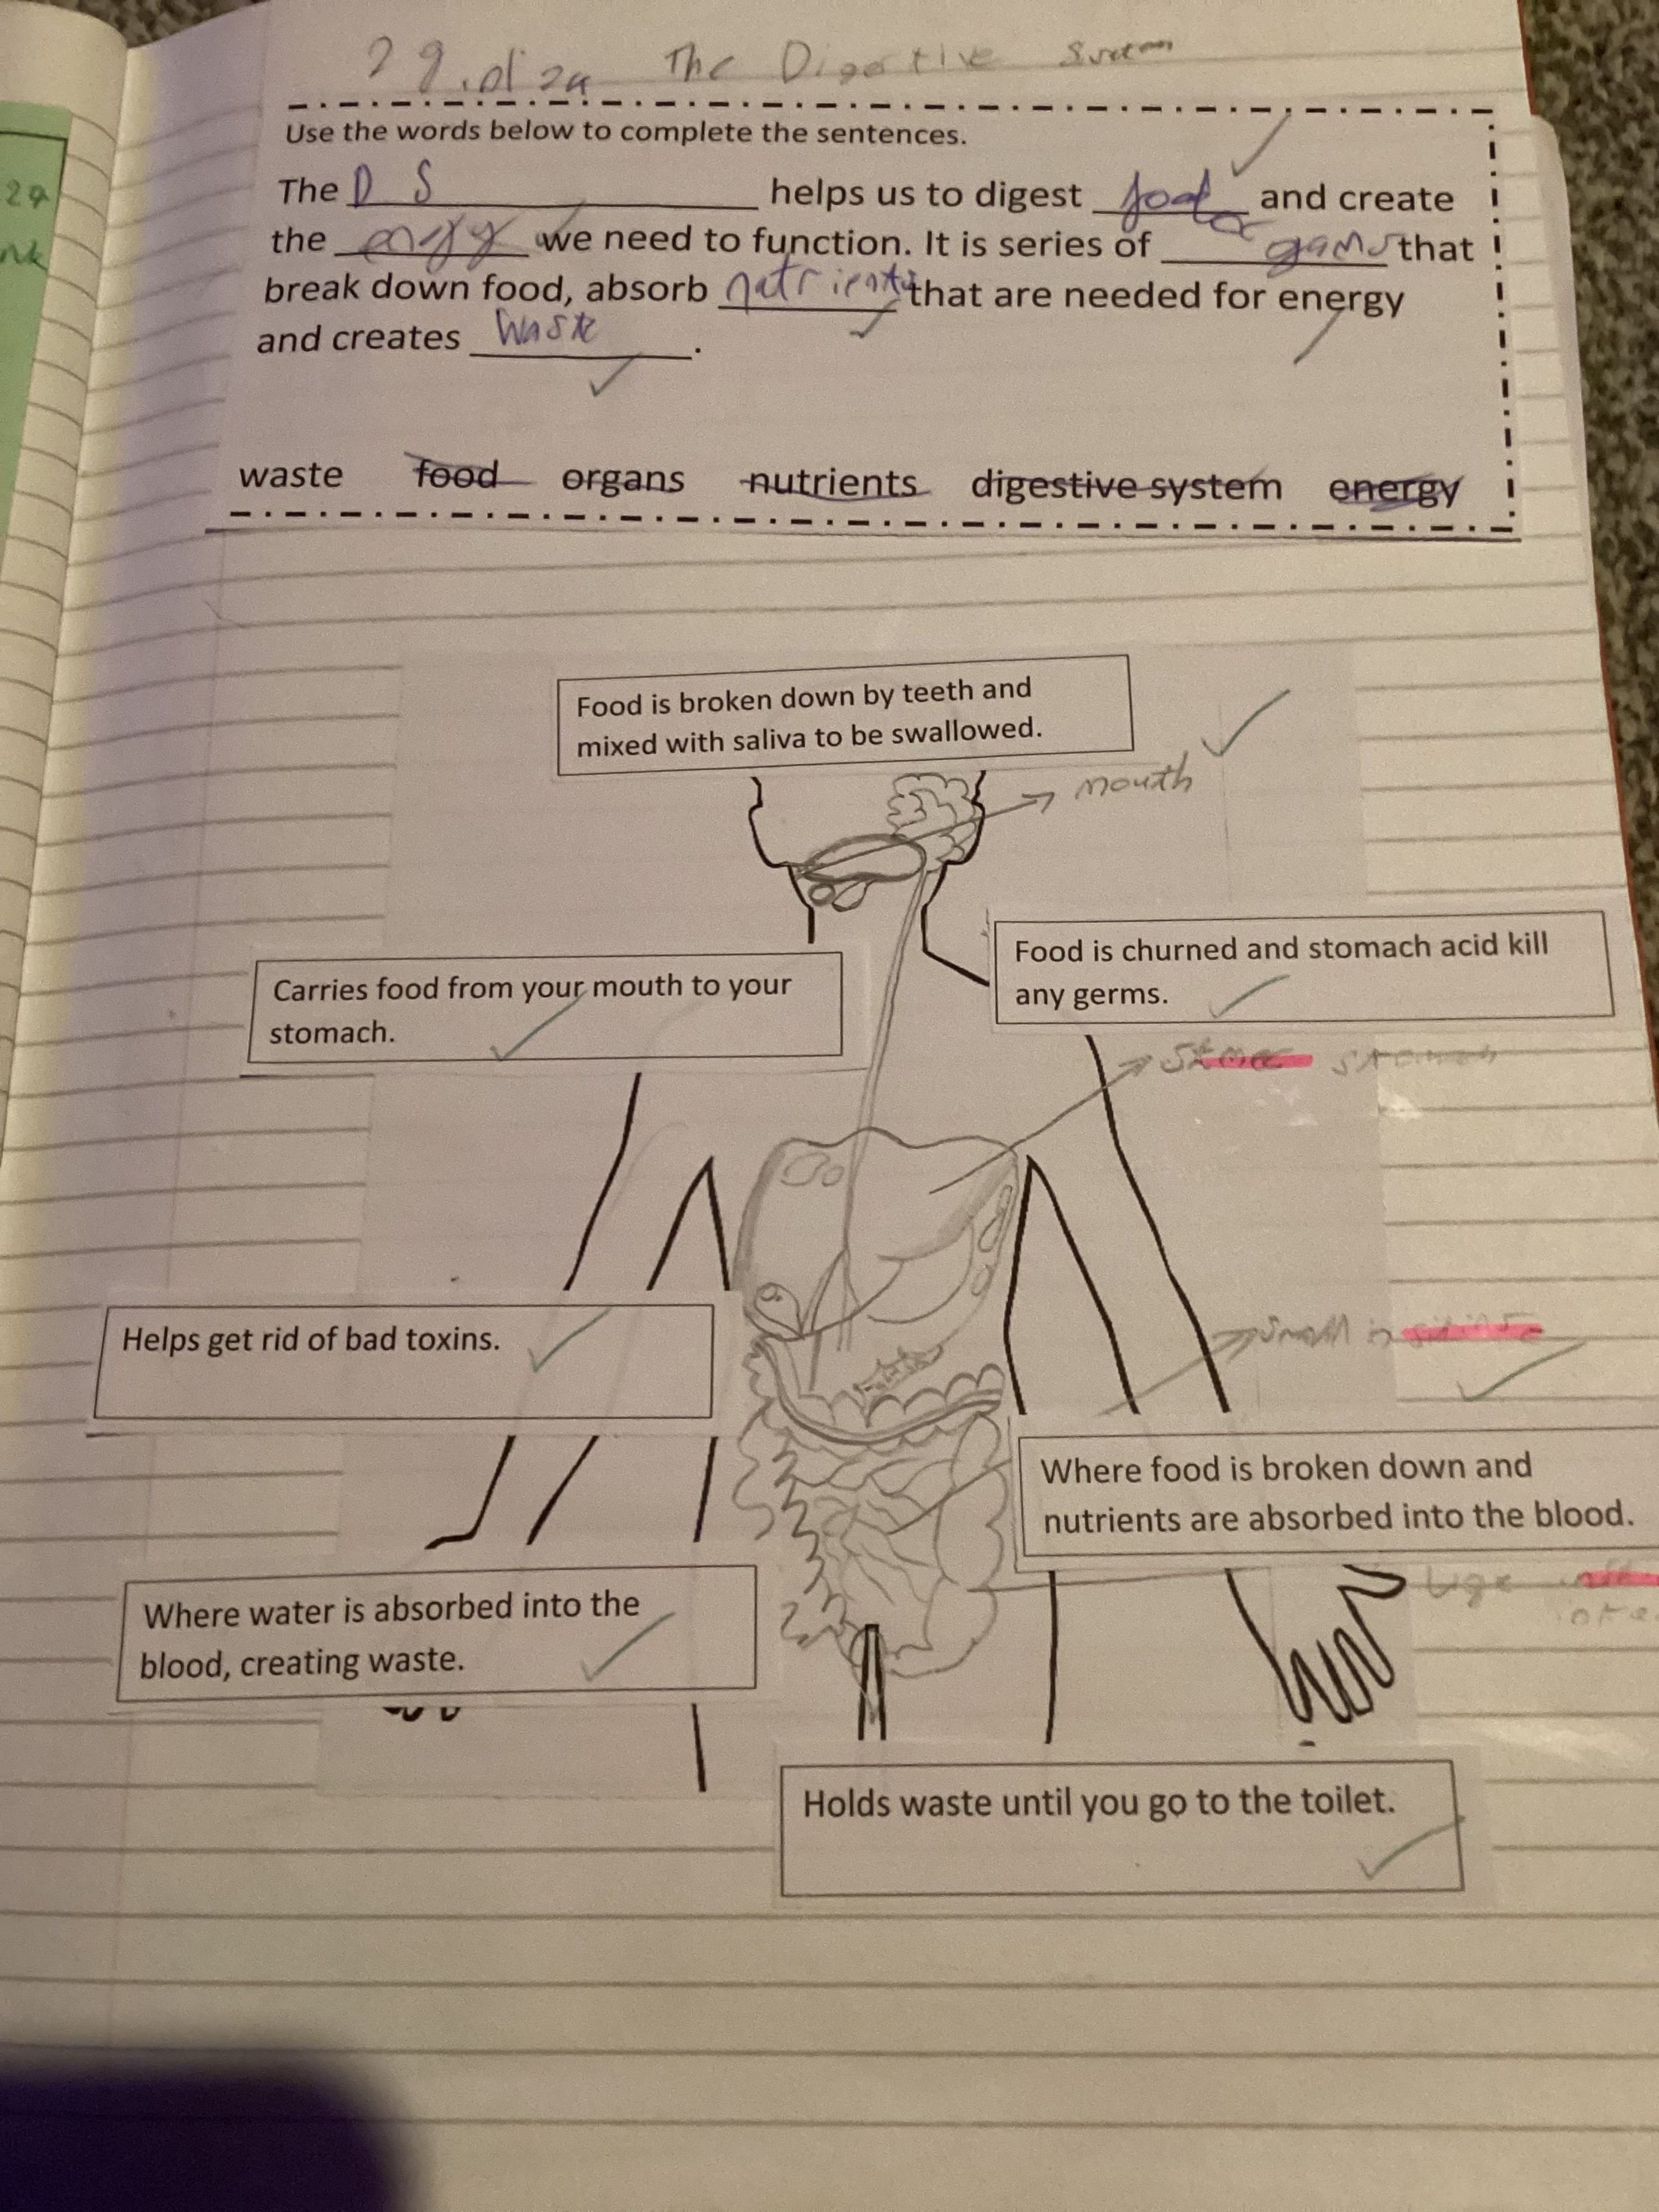 The Digestive
Use the words below to complete the sentences.
The D S helps us to digest food and create
the energy we need to function. It is series of organs that
break down food, absorb nutrients that are needed for energy
and creates waste.
waste food organs nutrients digestive system energy
Food is broken down by teeth and
mixed with saliva to be swallowed.
mouth
Carries food from your mouth to your
stomach.
Food is churned and stomach acid kill
any germs.
Helps get rid of bad toxins.
small in
Where food is broken down and
nutrients are absorbed into the blood.
Where water is absorbed into the
blood, creating waste.
Holds waste until you go to the toilet.